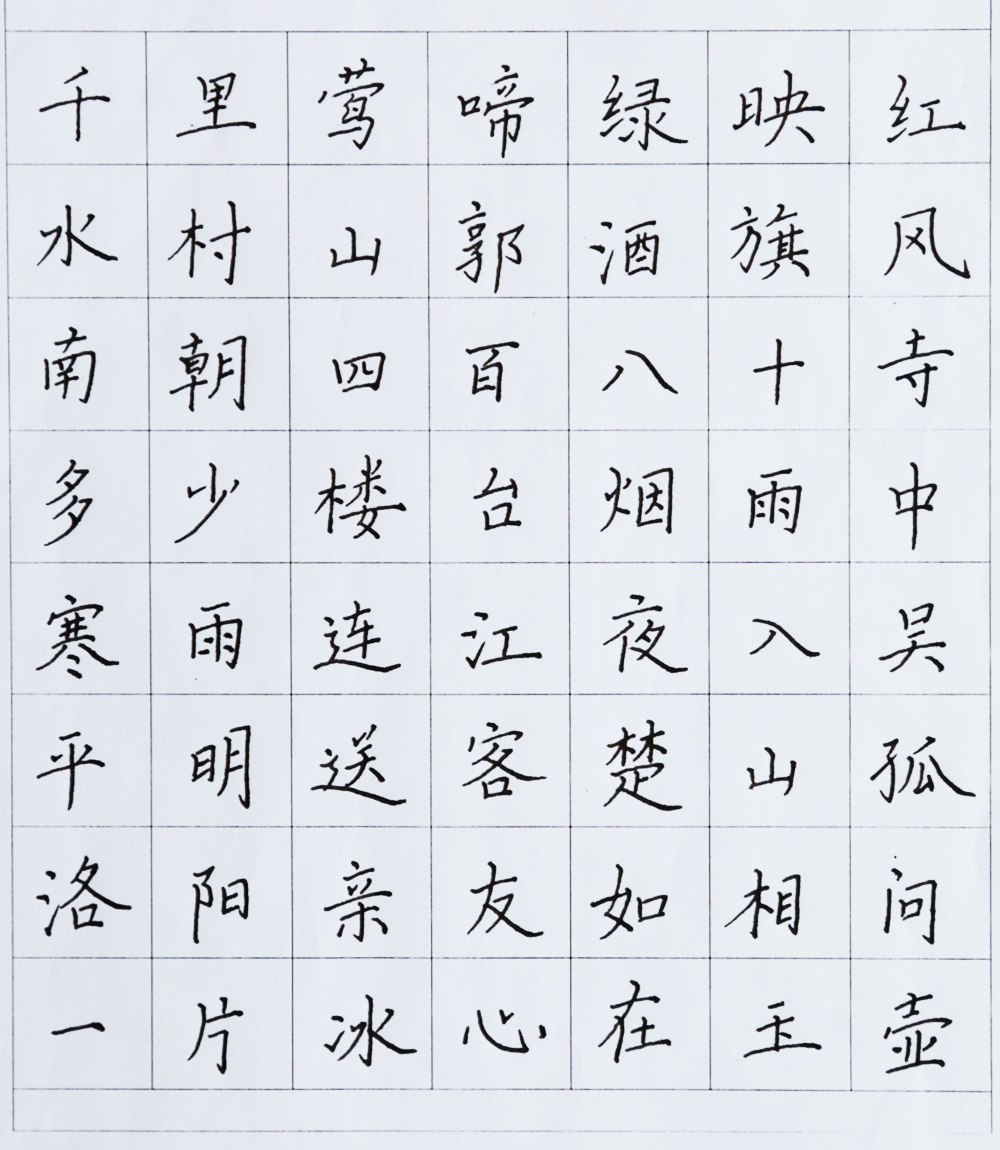 千里莺啼绿映红
水村山郭酒旗风
南朝四百八十寺
多少楼台烟雨中
寒雨连江夜入吴
平明送客楚山孤
洛阳亲友如相问
一片冰心在玉壶